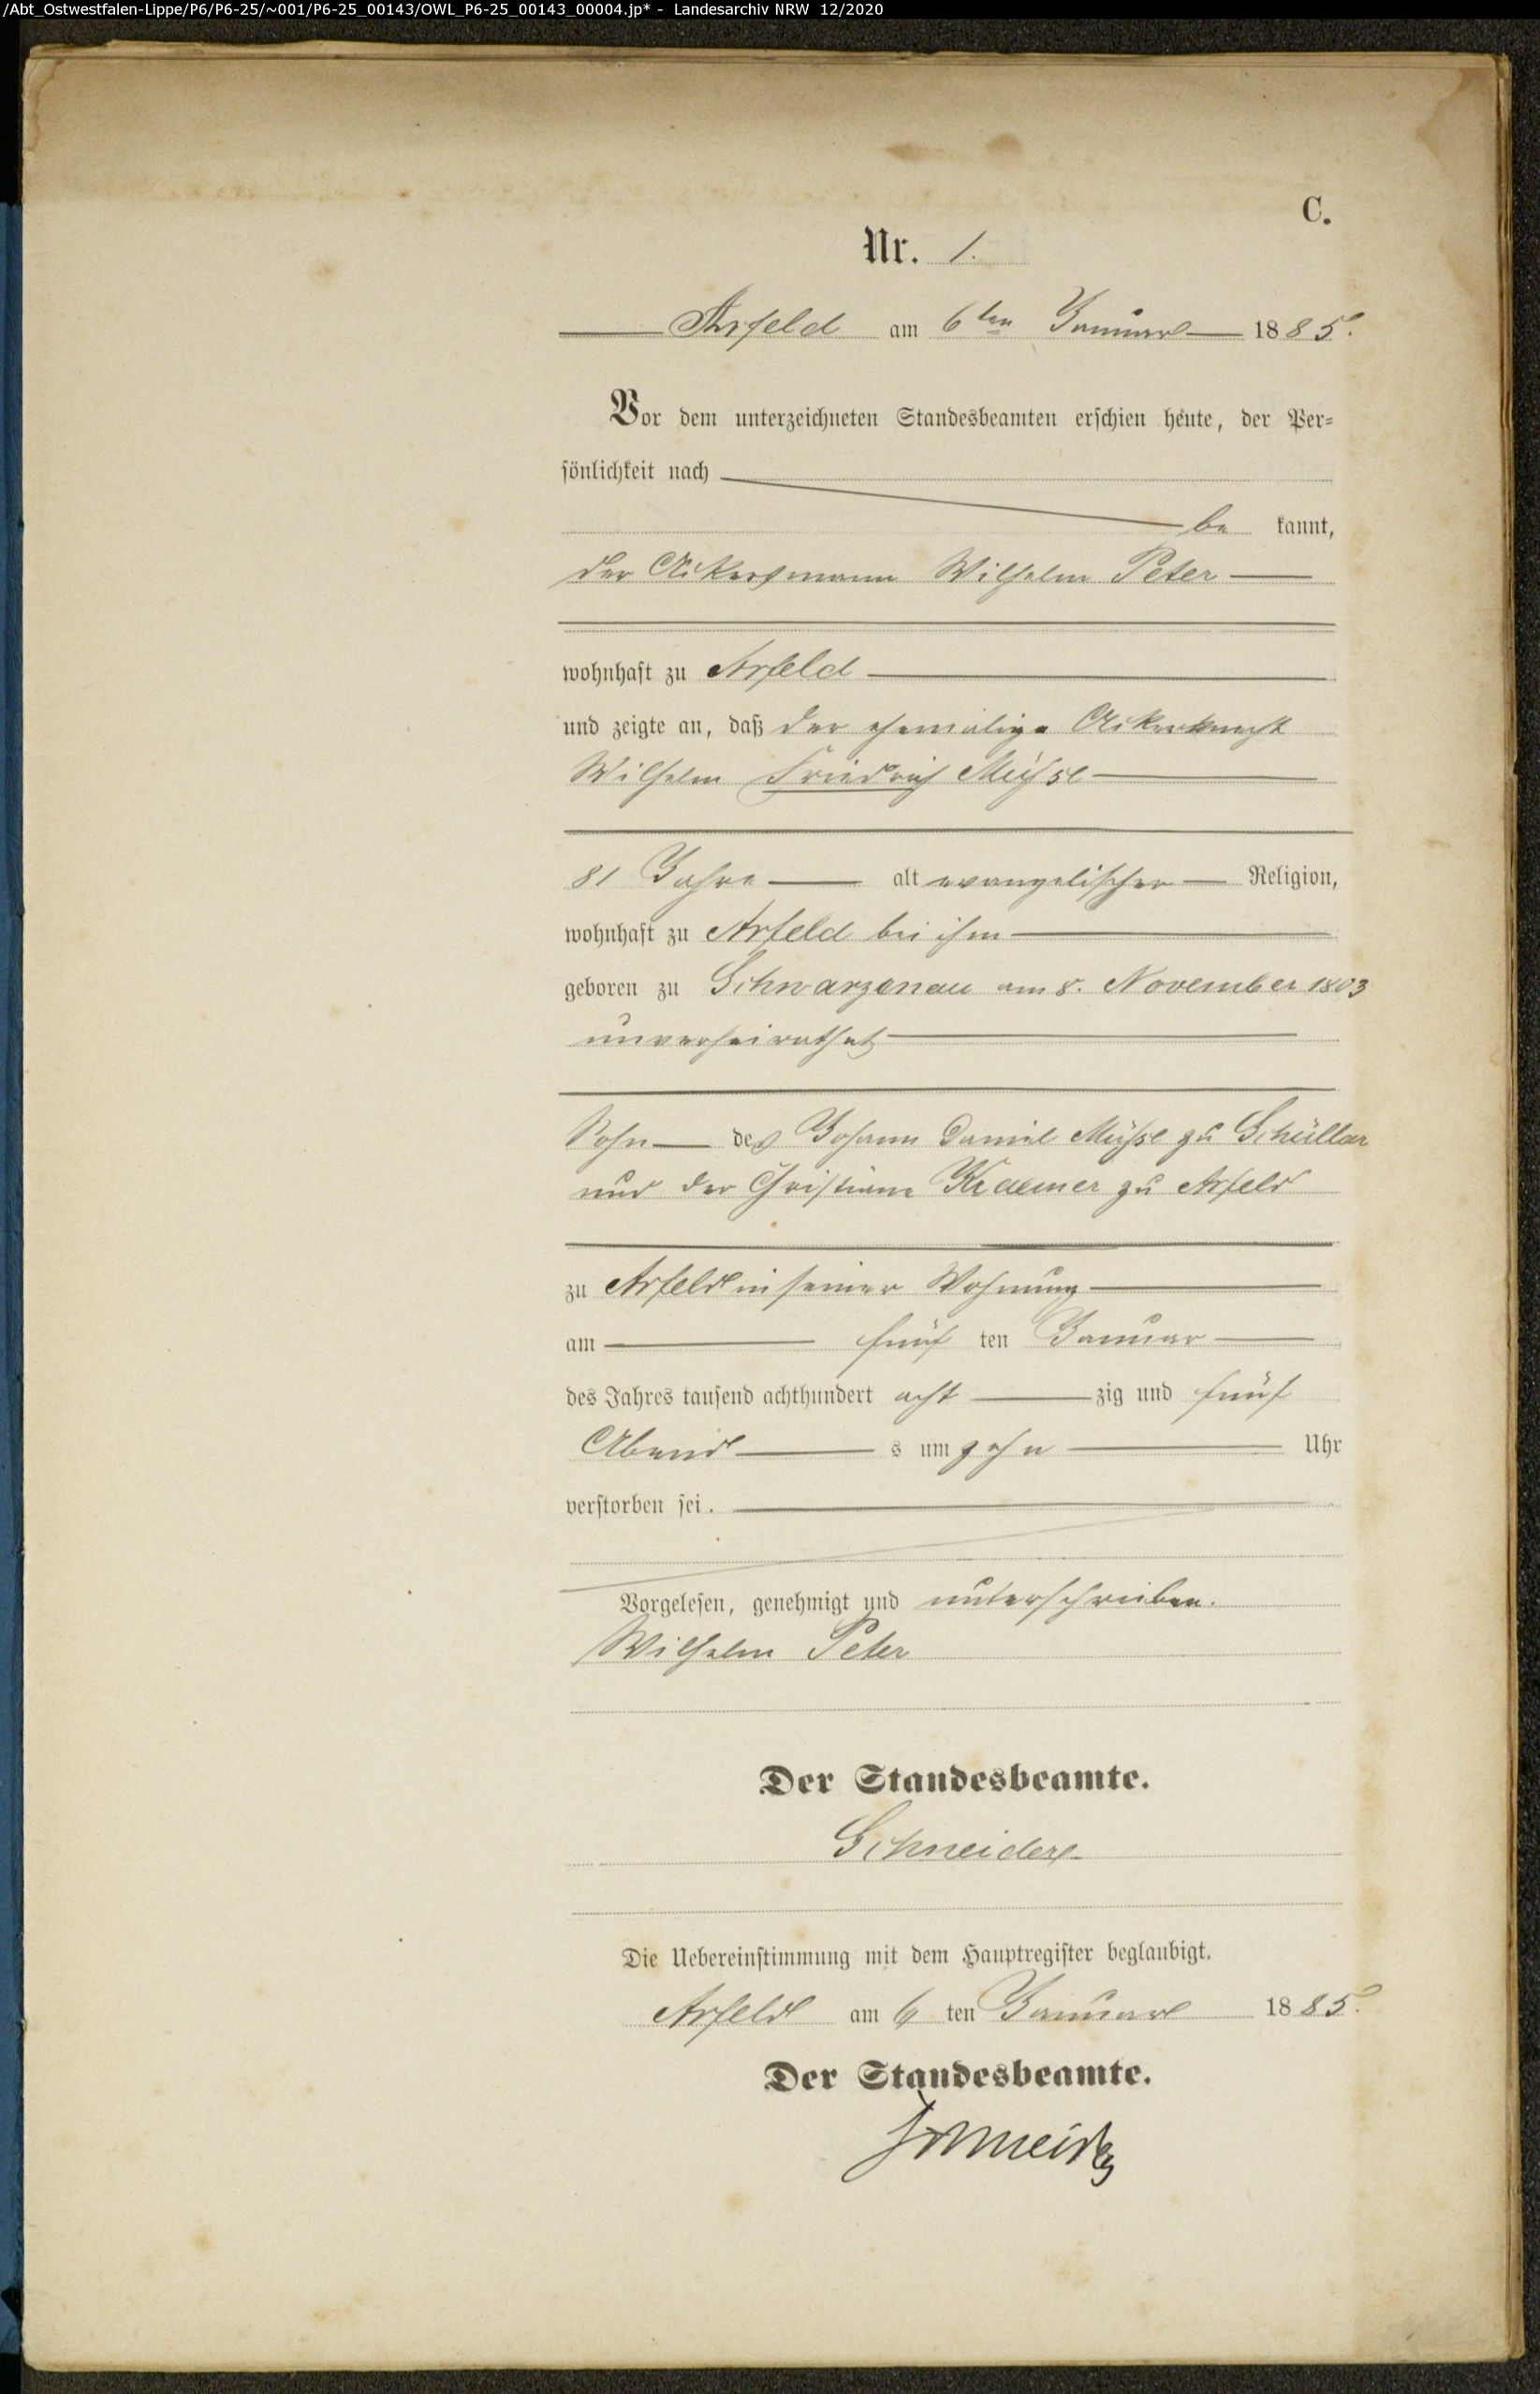 /Abt_Ostwestfalen-Lippe/P6/P6-25/~001/P6-25_00143/OWL_P6-25_00143_00004.jp* - Landesarchiv NRW 12/2020
C.
Nr. 1.
Arfeld am 6ten Januar 1885.
Vor dem unterzeichneten Standesbeamten erschien heute, der Per-
sönlichkeit nach
be kannt,
der Ackersmann Wilhelm Peter
wohnhaft zu Arfeld
und zeigte an, daß der ehemalige Ackerknecht
Wilhelm Friedrich Müsse
81 Jahre alt evangelischer Religion,
wohnhaft zu Arfeld bei ihm
geboren zu Schwarzenau am 8. November 1803
unverheirathet
Sohn des Johann Daniel Müsse zu Schüllar
und der Christiane Kraemer zu Arfeld
zu Arfeld in seiner Wohnung
am fünf ten Januar
des Jahres tausend achthundert acht zig und fünf
Abend s um zehn Uhr
verstorben sei.
Vorgelesen, genehmigt und unterschrieben.
Wilhelm Peter
Der Standesbeamte.
Schneider
Die Uebereinstimmung mit dem Hauptregister beglaubigt.
Arfeld am 6 ten Januar 1885.
Der Standesbeamte.
Schneider